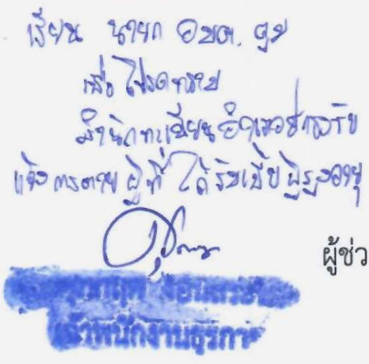 เรียน นายก อบต. คูบ
เพื่อโปรดทราบ
สำนักทะเบียนอำเภอ
แจ้งการตาย ผู้ที่ได้รับเบี้ยผู้สูงอายุ
ผู้ช่ว
เจ้าพนักงานธุรการ